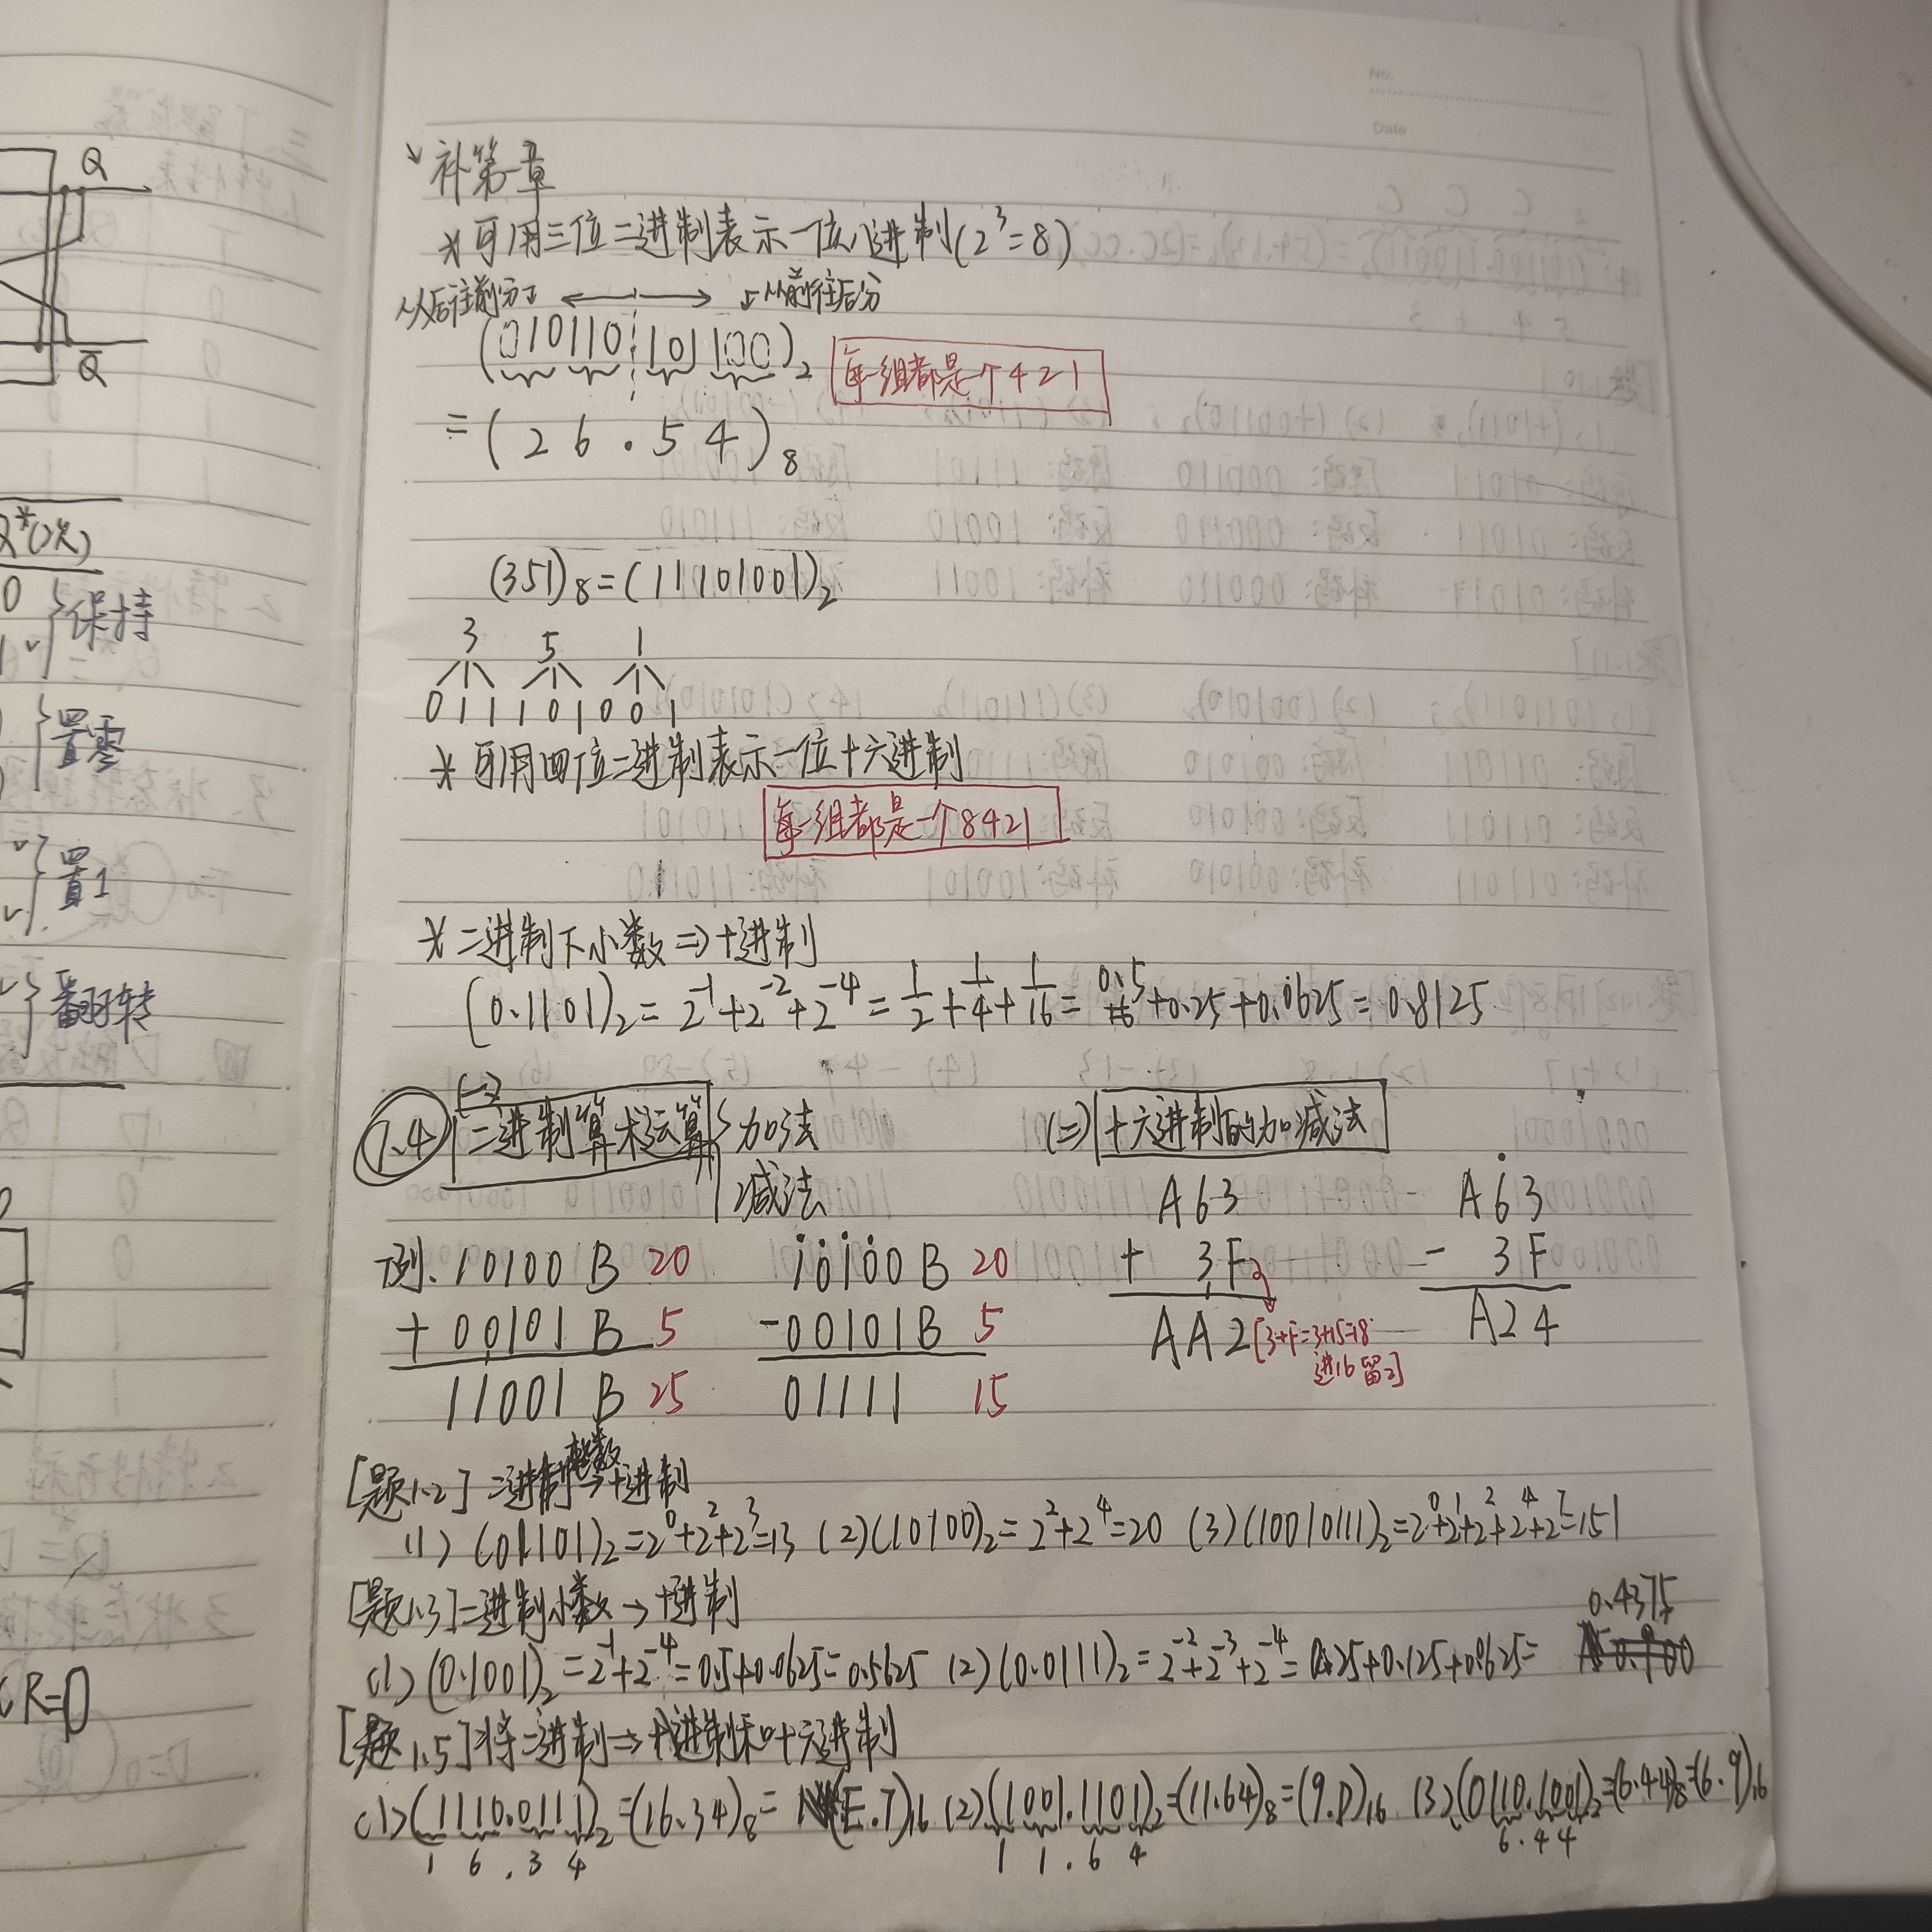 No.
Date
补第一章
* 可用三位二进制表示一位八进制(2³=8)
从后往前分↓ ←→ ↓从前往后分
(010110.101100)₂ 每一组都是一个421
=(26.54)₈
(351)₈=(11101001)₂
3 5 1
0 1 1 1 0 1 0 0 1
* 可用四位二进制表示一位十六进制
每一组都是一个8421
* 二进制下小数⇒十进制
(0.1101)₂=2⁻¹+2⁻²+2⁻⁴=1/2+1/4+1/16=0.5+0.25+0.0625=0.8125
1.4 (一) 二进制算术运算 { 加法 减法
(二) 十六进制的加减法
例. 10100 B 20
+ 00101 B 5
11001 B 25
10100 B 20
-00101B 5
01111 15
A63
+ 3F
AA2 [3+F=3+15=18
进16留2]
A63
- 3F
A24
[题1.2] 二进制整数→十进制
(1) (01101)₂=2⁰+2²+2³=13 (2)(10100)₂=2²+2⁴=20 (3)(10010111)₂=2⁰+2¹+2²+2⁴+2⁷=151
[题1.3]二进制小数→十进制
(1) (0.1001)₂=2⁻¹+2⁻⁴=0.5+0.0625=0.5625 (2)(0.0111)₂=2⁻²+2⁻³+2⁻⁴=0.25+0.125+0.0625= 0.4375
[题1.5]将二进制→八进制和十六进制
(1)(1110.0111)₂=(16.34)₈=(E.7)₁₆ (2)(1001.1101)₂=(11.64)₈=(9.D)₁₆ (3)(0110.1001)₂=(6.44)₈=(6.9)₁₆
1 6 . 3 4
1 1 . 6 4
6 . 4 4
Q
Q̄
Q*(次)
0
1
保持
置零
置1
翻转
R=0